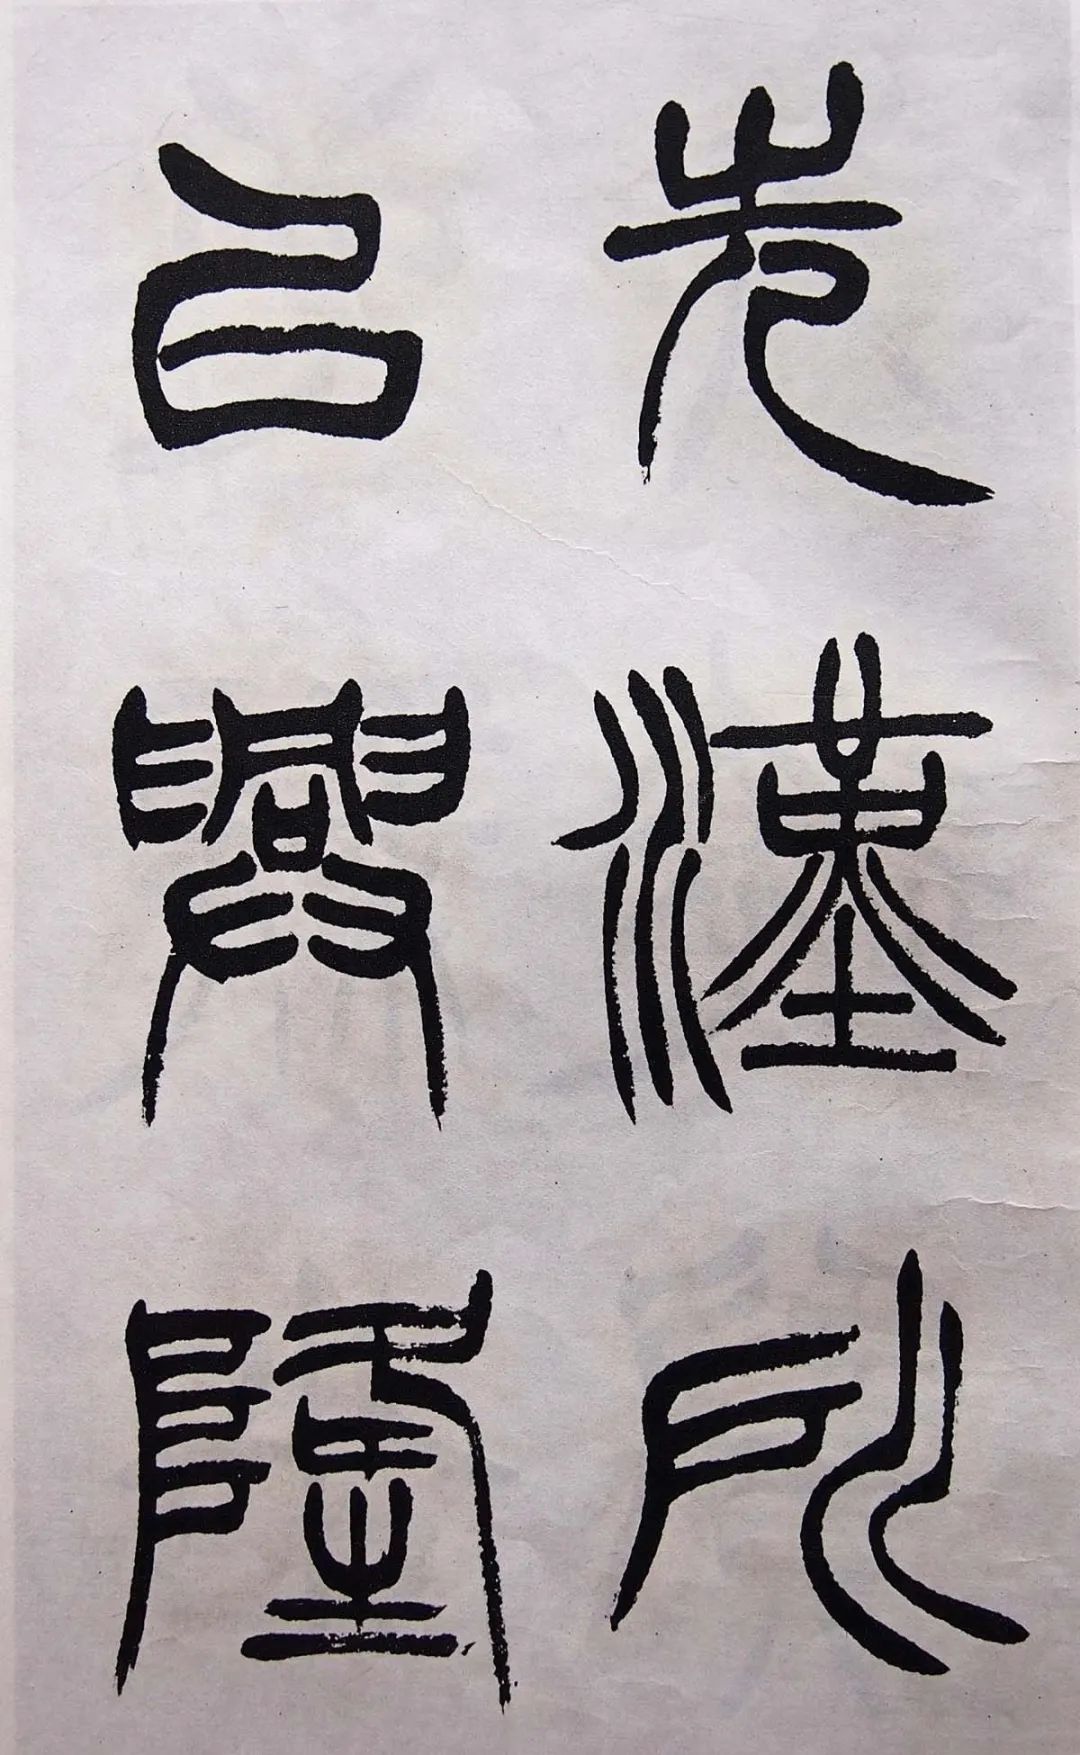 先漢所
㠯興隆